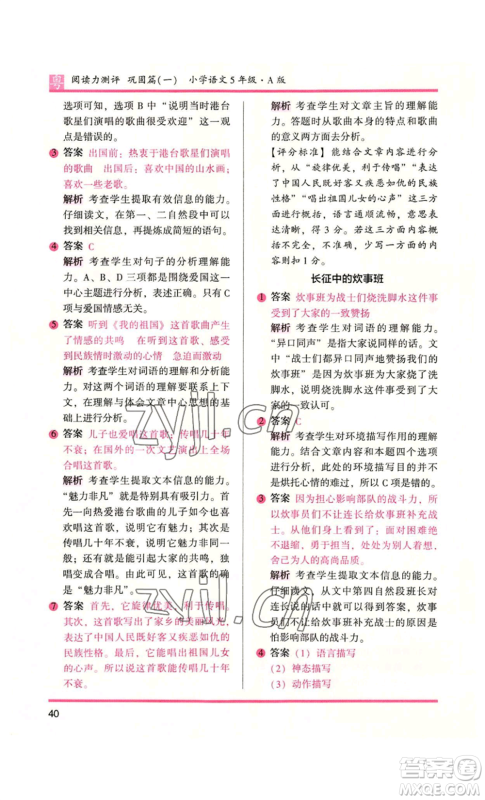 粤 阅读力测评 巩固篇(一) 小学语文5年级·A版
选项可知，选项B中“说明当时港台
歌星们演唱的歌曲很受欢迎”这一观
点是错误的。
3 答案 出国前：热衷于港台歌星们演唱
的歌曲 出国后：喜欢中国的山水画；
喜欢一些老歌。
解析 考查学生提取有效信息的能力。
仔细读文，在第一、二自然段中可以找
到相关信息，归纳整理写出语句。
4 答案 C
解析 考查学生对文章主题的理解能
力。A、B、D三项都是围绕爱国这一
中心主题进行表达的。因此只有C项
与爱国无关。
5 答案 听到《我的祖国》这首歌曲产生
了情感的共鸣 当听到这首歌、感受
到民族情时激动的心情 急迫而激动
解析 考查学生对文本的理解能力。
在理解与体会文章中心思想的基础
上，概括出答案。
6 答案 儿子也爱唱这首歌；传唱几十年
不衰；在国外的一次文艺演出上全场
合唱这首歌。
解析 考查学生对文章的理解能力。
“魅力非凡”就是指非常有魅力。从
首先一向热爱港台歌曲的儿子也喜
欢唱这首歌，说明它有魅力；其次引
起大家的共鸣，大家一起合唱，说明
它有魅力；还有，这首歌的确是“魅
力非凡”。
7 答案 首先，它旋律优美，利于传唱。
其次，这首歌写出了家乡的美好，又
表达了中国人民既好客又保家卫国
的民族性格。最后，它唱出祖国儿女
的心声。所以说这首歌能传唱几十年
不衰。
40
解析 考查学生对文章主旨的理解能
力。答题时从歌曲本身的特点和歌曲
的意义两方面去分析。
【评分标准】能结合文章内容进行分
析，从“旋律优美，利于传唱”“写出
了中国人民既好客又保家卫国的民族
性格”“唱出祖国儿女的心声”这三方
面分析，语言通顺流畅，得3分。有
欠缺处，酌情扣分。
长征中的炊事班
1 答案 炊事班为战士们烧洗脚水这件事
受到了大家的一致赞扬
解析 考查学生对词语的理解能力。
“异口同声”是指大家说同样的话。文
中“战士们异口同声地赞扬炊事班”
是因为炊事班不怕辛苦给大家烧了洗
脚水，所以这件事得到了大家的认
可，大家的表达一致。
2 答案 C
解析 考查学生对环境描写作用的理解
能力。此处的环境描写在本题四个选
项中，A、B、D项都正确，C项不
是烘托心情的表达，所以C项是错的。
3 答案 因为担心影响部队的战斗力，所
以炊事员们不让连长给炊事班补充战
士，自己承担起了全部工作；面对困难绝
不退缩，勇于担当，表现了炊事员们
舍己为人的高尚品质。
解析 考查学生提取文本信息的能力。
仔细阅读，从文中第四自然段班长对
连长说的话可以看出，炊事员们是
怕影响部队的战斗力。
4 答案 （1）语言描写
（2）神态描写
（3）动作描写
zyjl.cn
zyjl.cn
答案圈
MXQE.COM